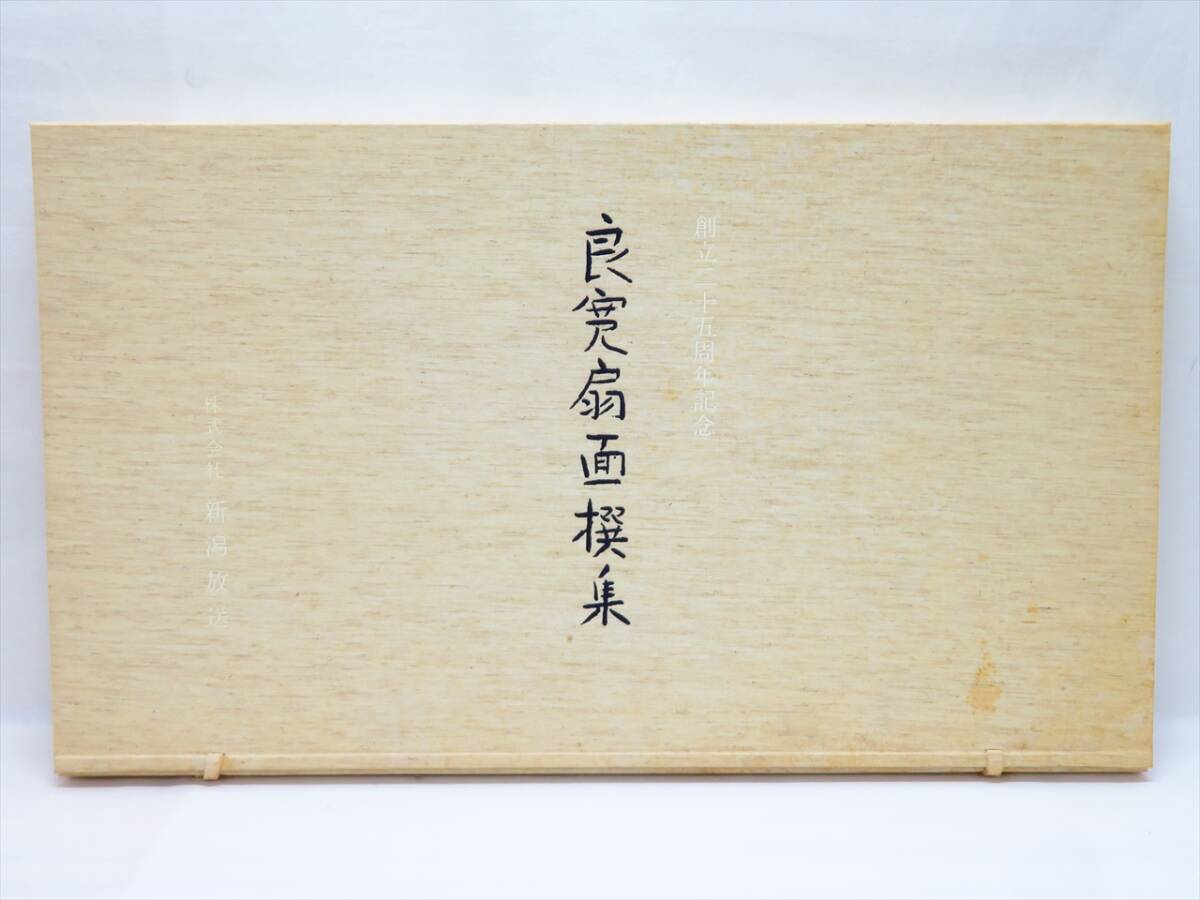 創立二十五周年記念
良寛扇面撰集
株式会社 新潟放送